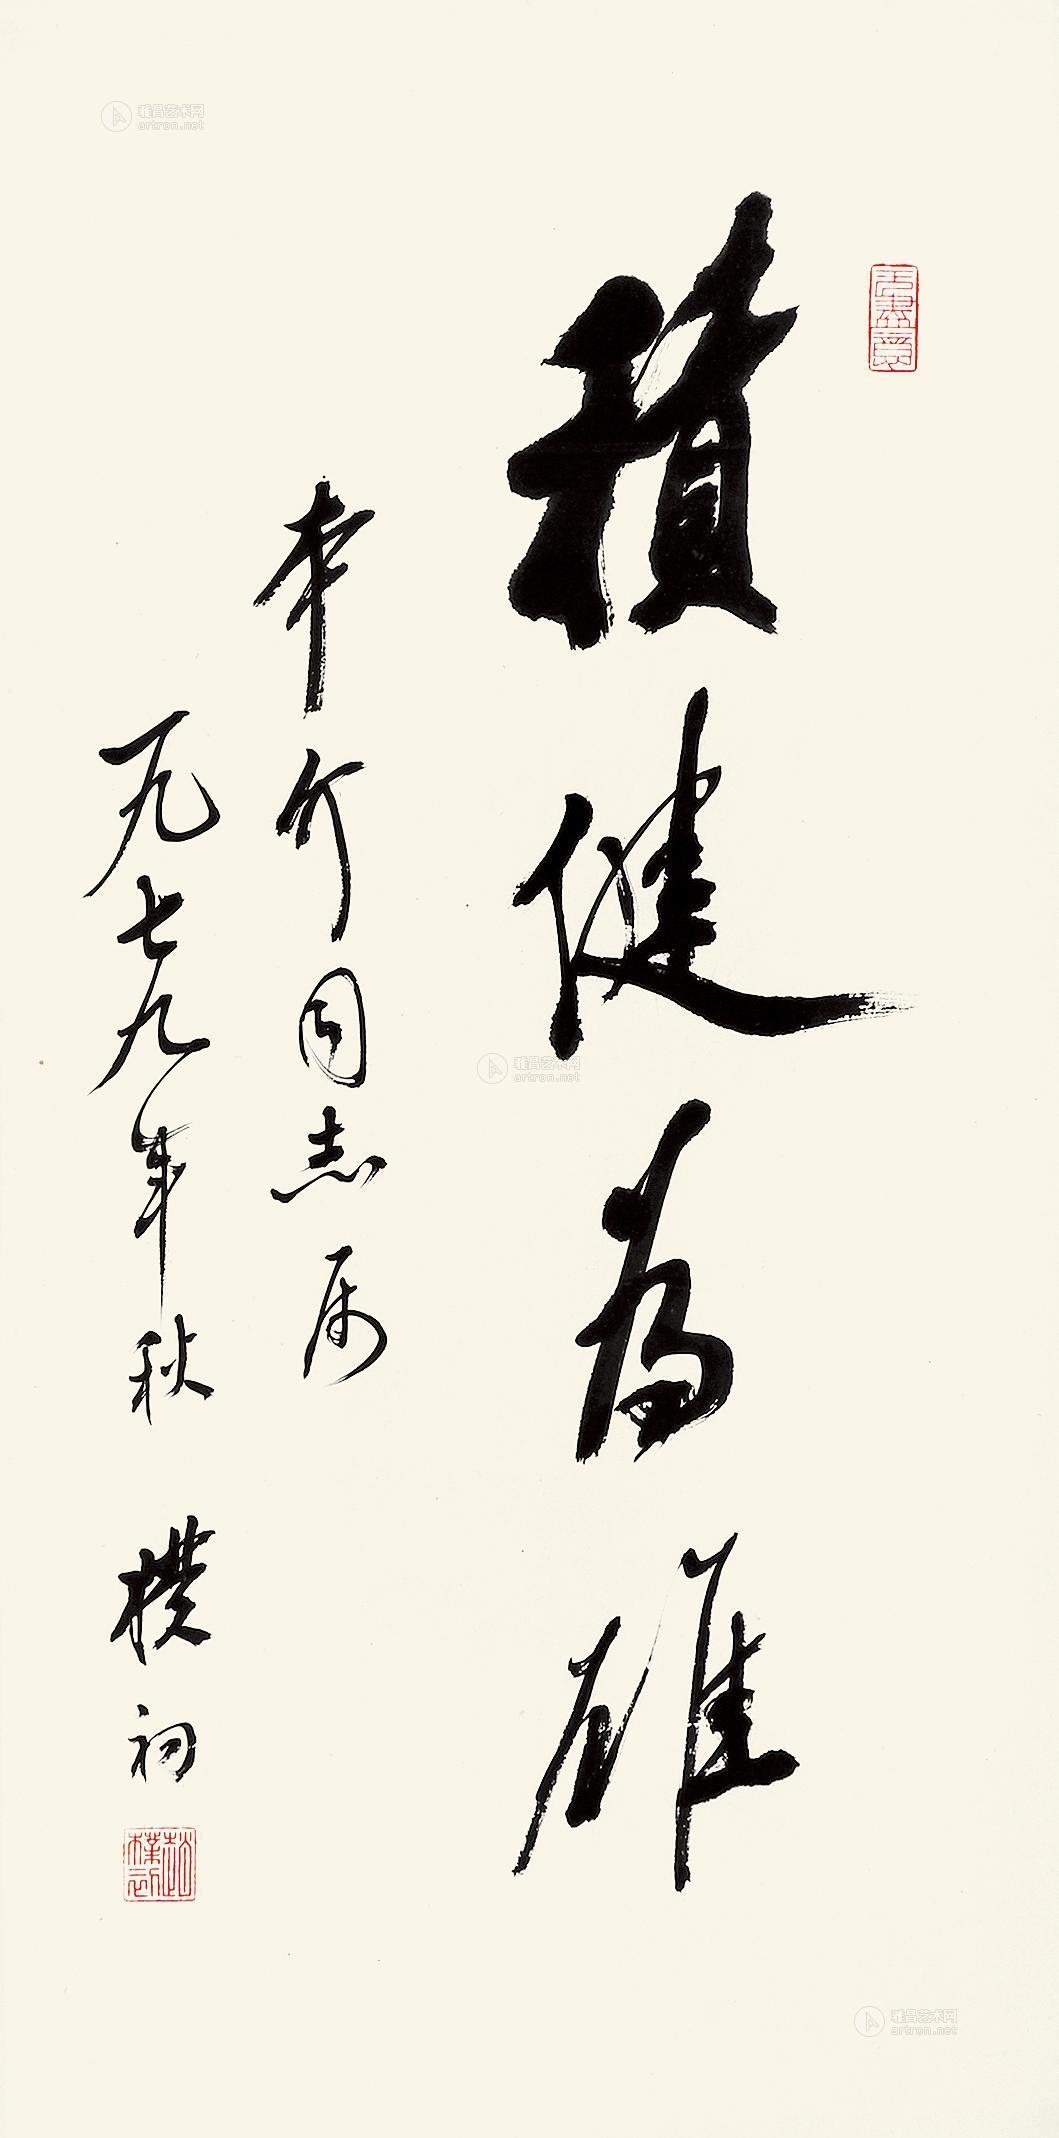 積健為雄
本介同志属
一九七九年秋 樸初
無盡意
趙樸初
雅昌艺术网
artron.net
雅昌艺术网
artron.net
雅昌艺术网
artron.net